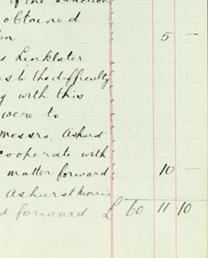 of the sanction
obtained
on 5 —
s Linklater
rs to the difficulty
g with this
were to
messrs. Ashurst
cooperate with
matter forward 10 —
Ashurst Morris
d forward £ 60 11 10